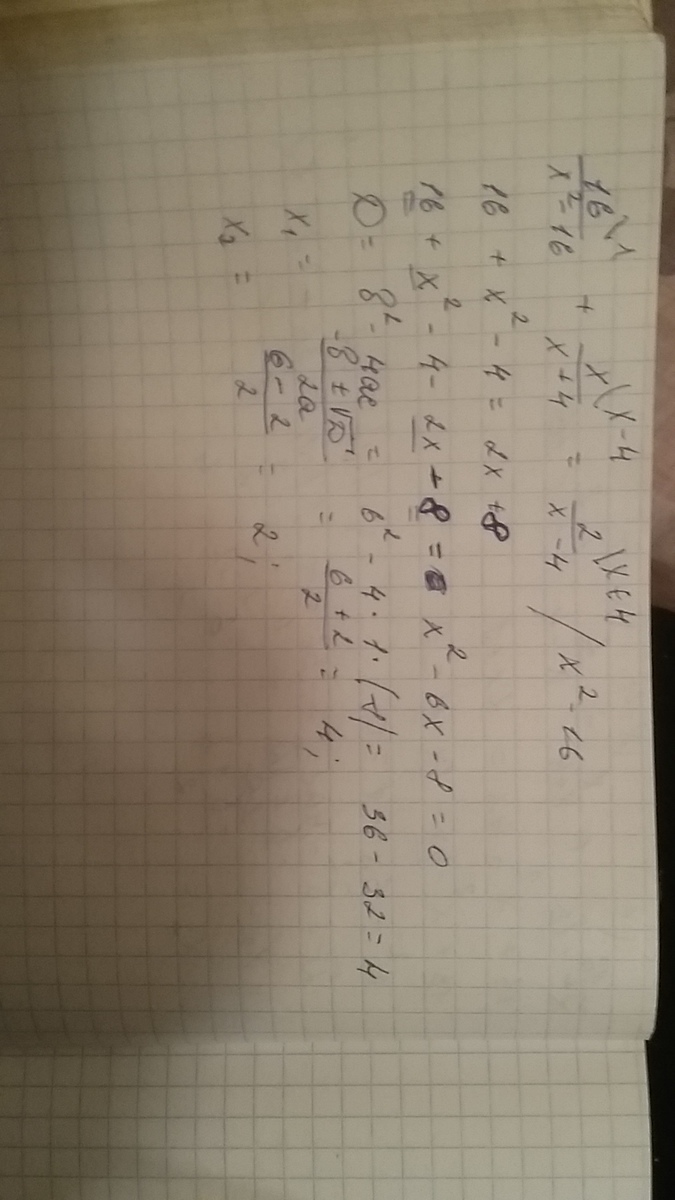 16\1/x²-16 + x\x-4/x+4 = 2\x+4/x-4 / x²-16
16 + x² - 4 = 2x + 8
16 + x² - 4 - 2x + 8 = x² - 6x - 8 = 0
D = b² - 4ac = 6² - 4 · 1 · (8) = 36 - 32 = 4
x₁ = -b ± √D/2a = 6 + 2/2 = 4;
x₂ = 6 - 2/2 = 2;